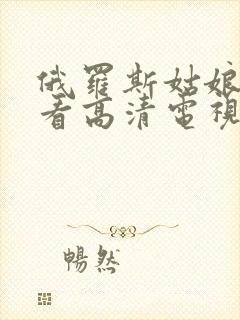 俄羅斯姑娘
看高清電視
暢然